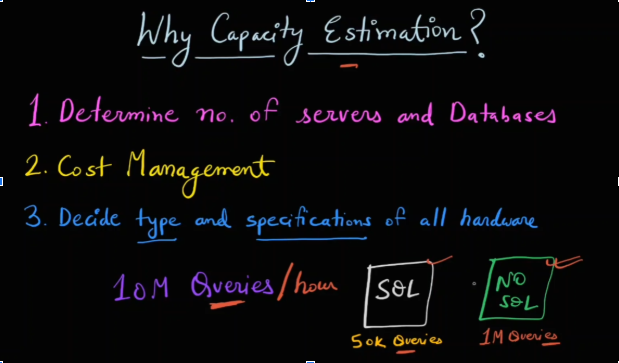 Why Capacity Estimation?
1. Determine no. of servers and Databases
2. Cost Management
3. Decide type and specifications of all hardware
10M Queries/hour
SQL
50k Queries
NO
SQL
1M Queries